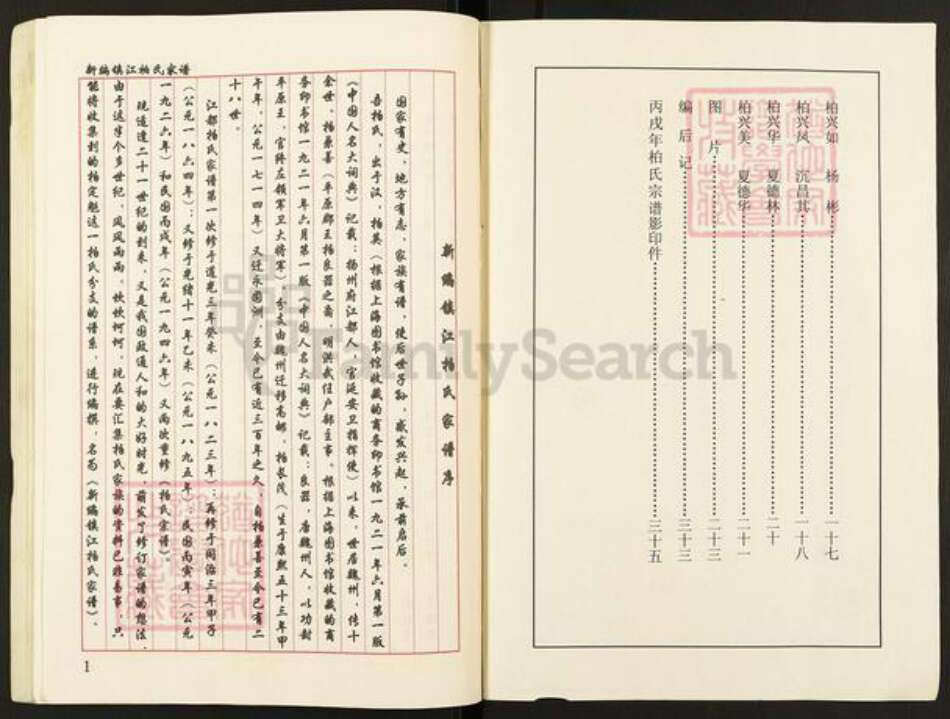 柏兴如 杨彬 一十七
柏兴凤 沉昌其 一十八
柏兴华 夏德林 二十
柏兴美 夏德华 二十一
图片 二十三
编后记 三十三
丙戌年柏氏宗谱影印件 三十五
新编镇江柏氏家谱
新编镇江柏氏家谱序
国家有史,地方有志,家族有谱,使后世子孙,感发兴起,承前启后。
吾柏氏,出于汉,柏英(根据上海图书馆收藏的商务印书馆一九二一年六月第一版
《中国人名大词典》记载:扬州府江都人,官延安卫指挥使)以来,世居魏州,传十
余世,柏兼善(平原郡王柏良器之裔,明洪武任户部主事。根据上海图书馆收藏的商
务印书馆一九二一年六月第一版《中国人名大词典》记载:良器,唐魏州人,以功封
平原王,官终左领军卫大将军),分支由魏州迁移高邮,柏长茂(生于康熙五十三年甲
午年,公元一七一四年)又迁永固洲,至今已有近三百年之久,自柏兼善至今已有二
十八世。
江都柏氏家谱第一次修于道光三年癸未(公元一八二三年);再修于同治三年甲子
(公元一八六四年);又修于光绪十一年乙未(公元一八九五年);民国丙寅年(公元
一九二六年)和民国丙戌年(公元一九四六年)又两次重修《柏氏宗谱》。
现适逢二十一世纪的到来,又是我国政通人和的大好时光,萌发了修订家谱的想法,
由于这半个多世纪,风风雨雨,坎坎坷坷,现在要汇集柏氏家族的资料已非易事,只
能将收集到的柏定魁这一柏氏分支的谱系,进行编撰,名为《新编镇江柏氏家谱》。
1
FamilySearch